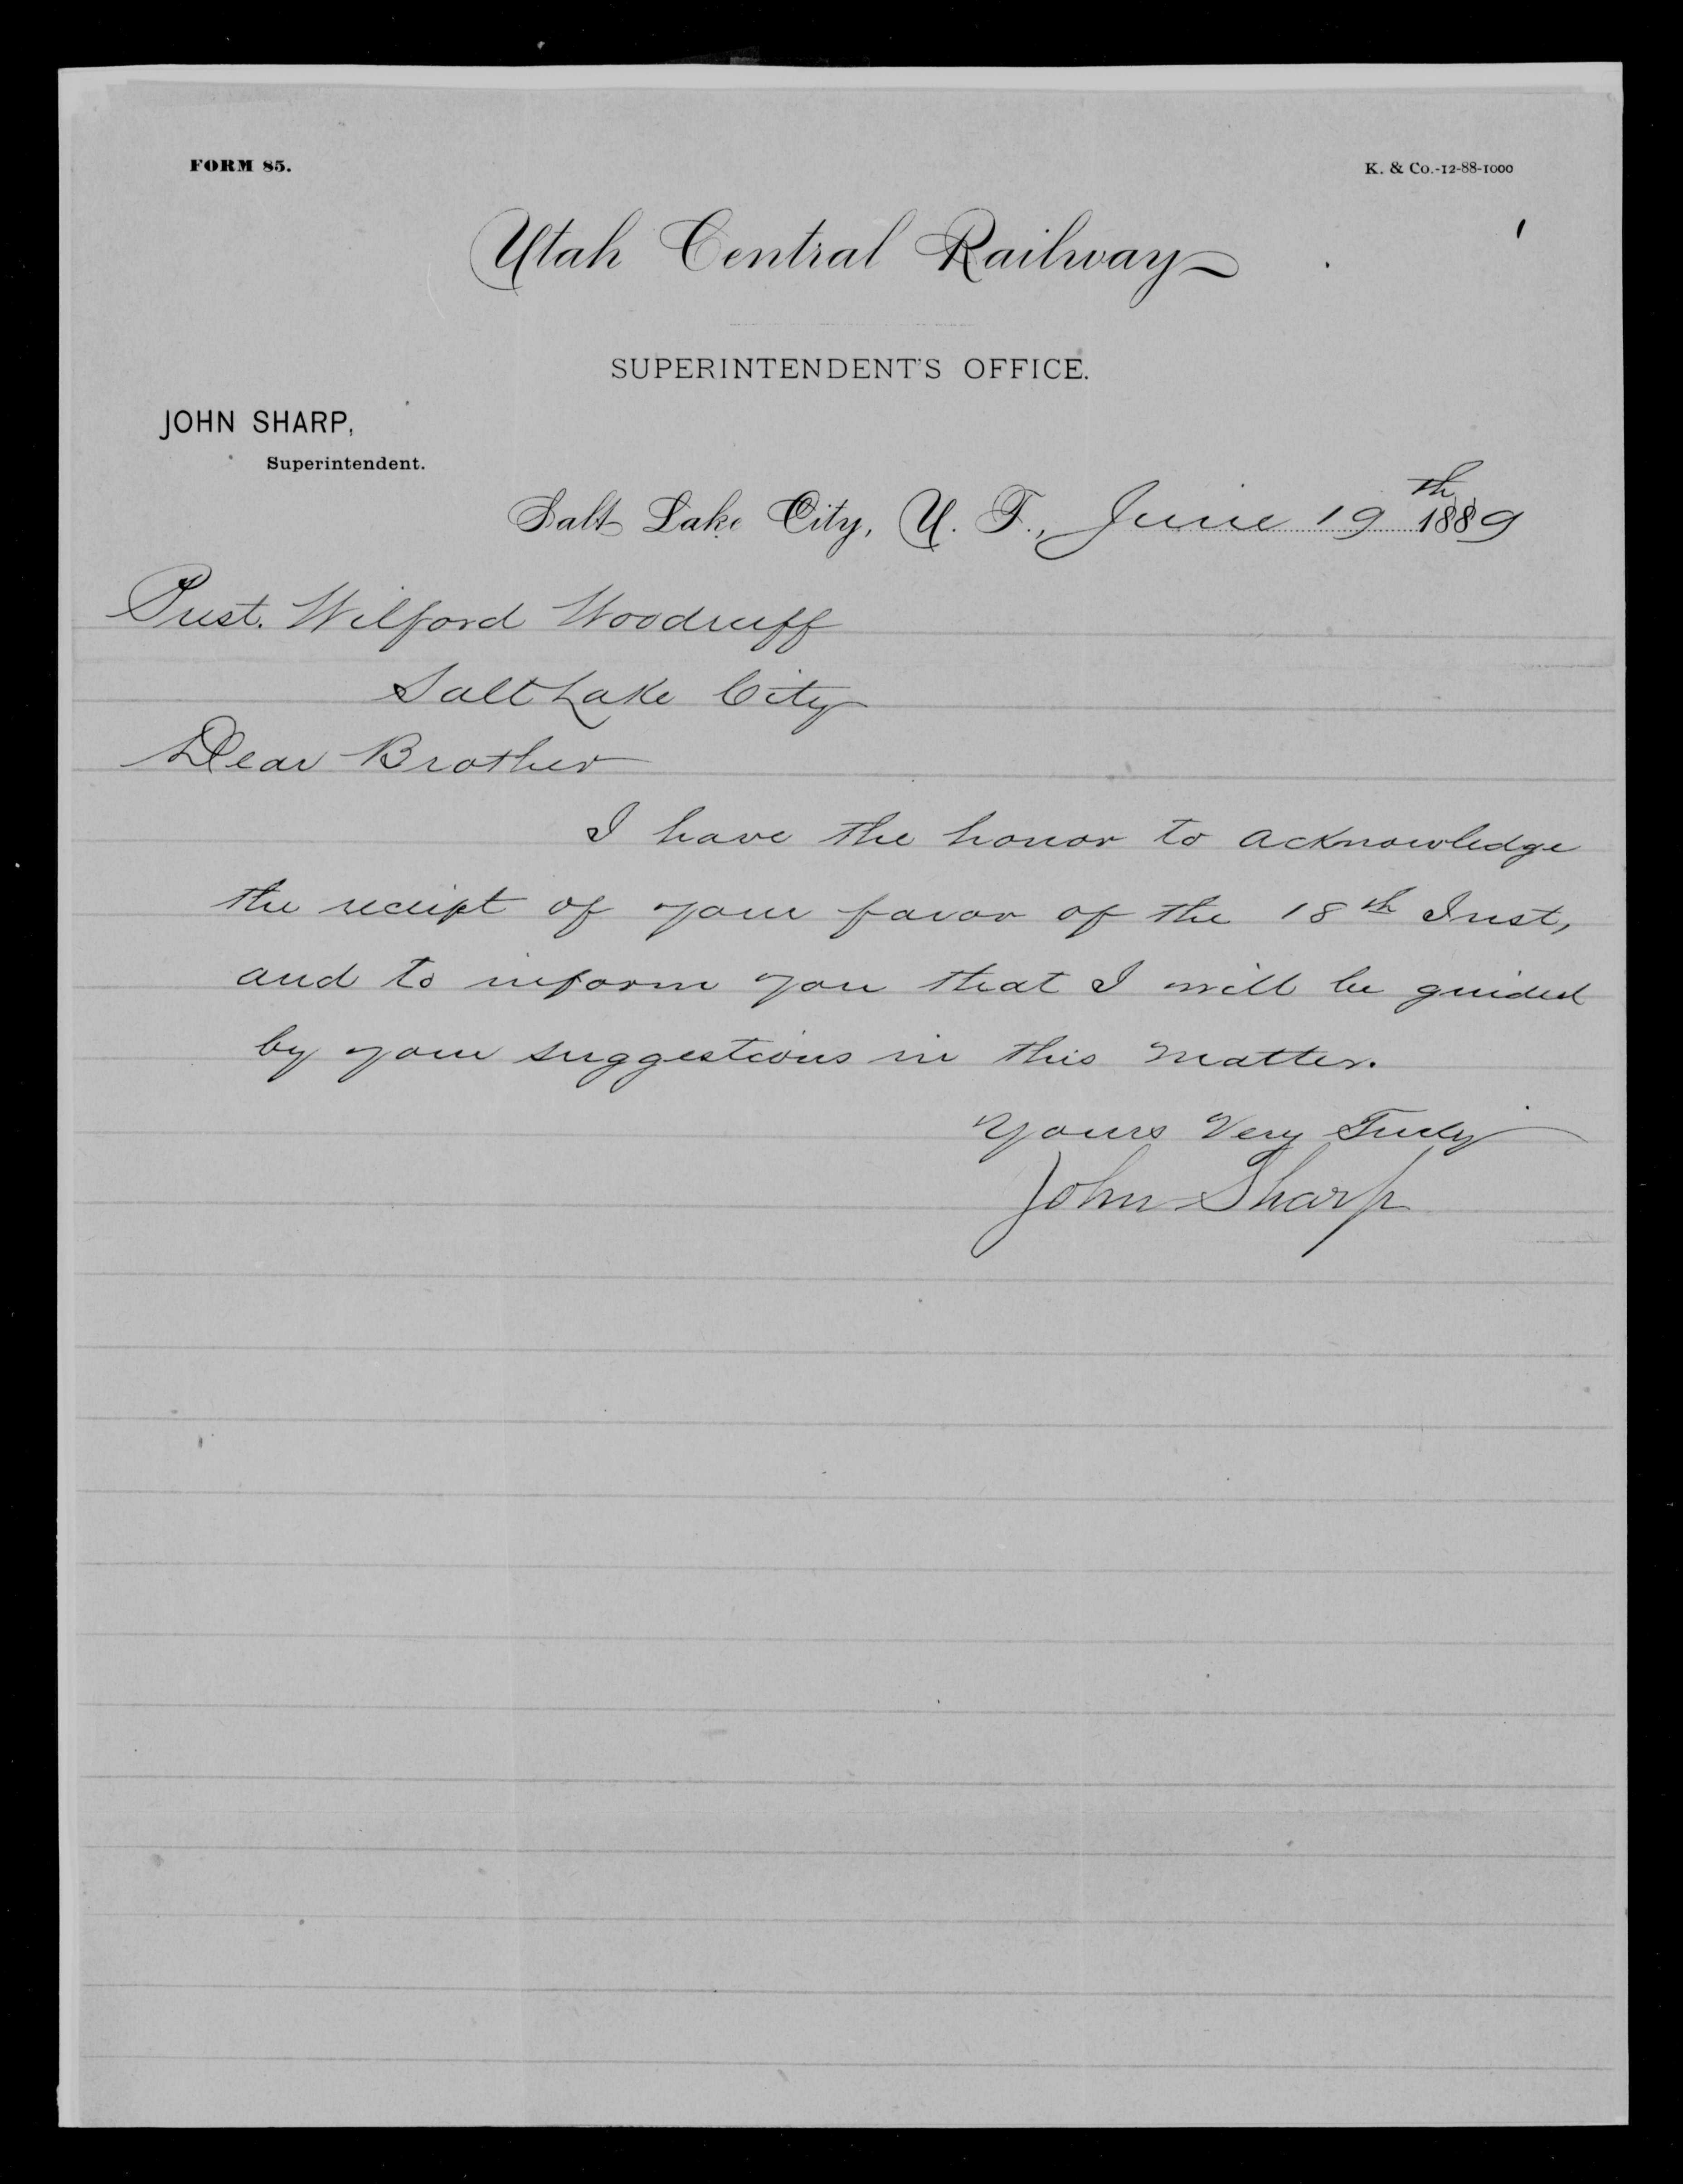 FORM 85.
K. & Co.-12-88-1000
Utah Central Railway
SUPERINTENDENT'S OFFICE.
JOHN SHARP,
Superintendent.
Salt Lake City, U. T., June 19th 1889
Prest. Wilford Woodruff
Salt Lake City
Dear Brother
I have the honor to acknowledge
the receipt of your favor of the 18th Inst,
and to inform you that I will be guided
by your suggestions in this matter.
Yours Very Truly
John Sharp